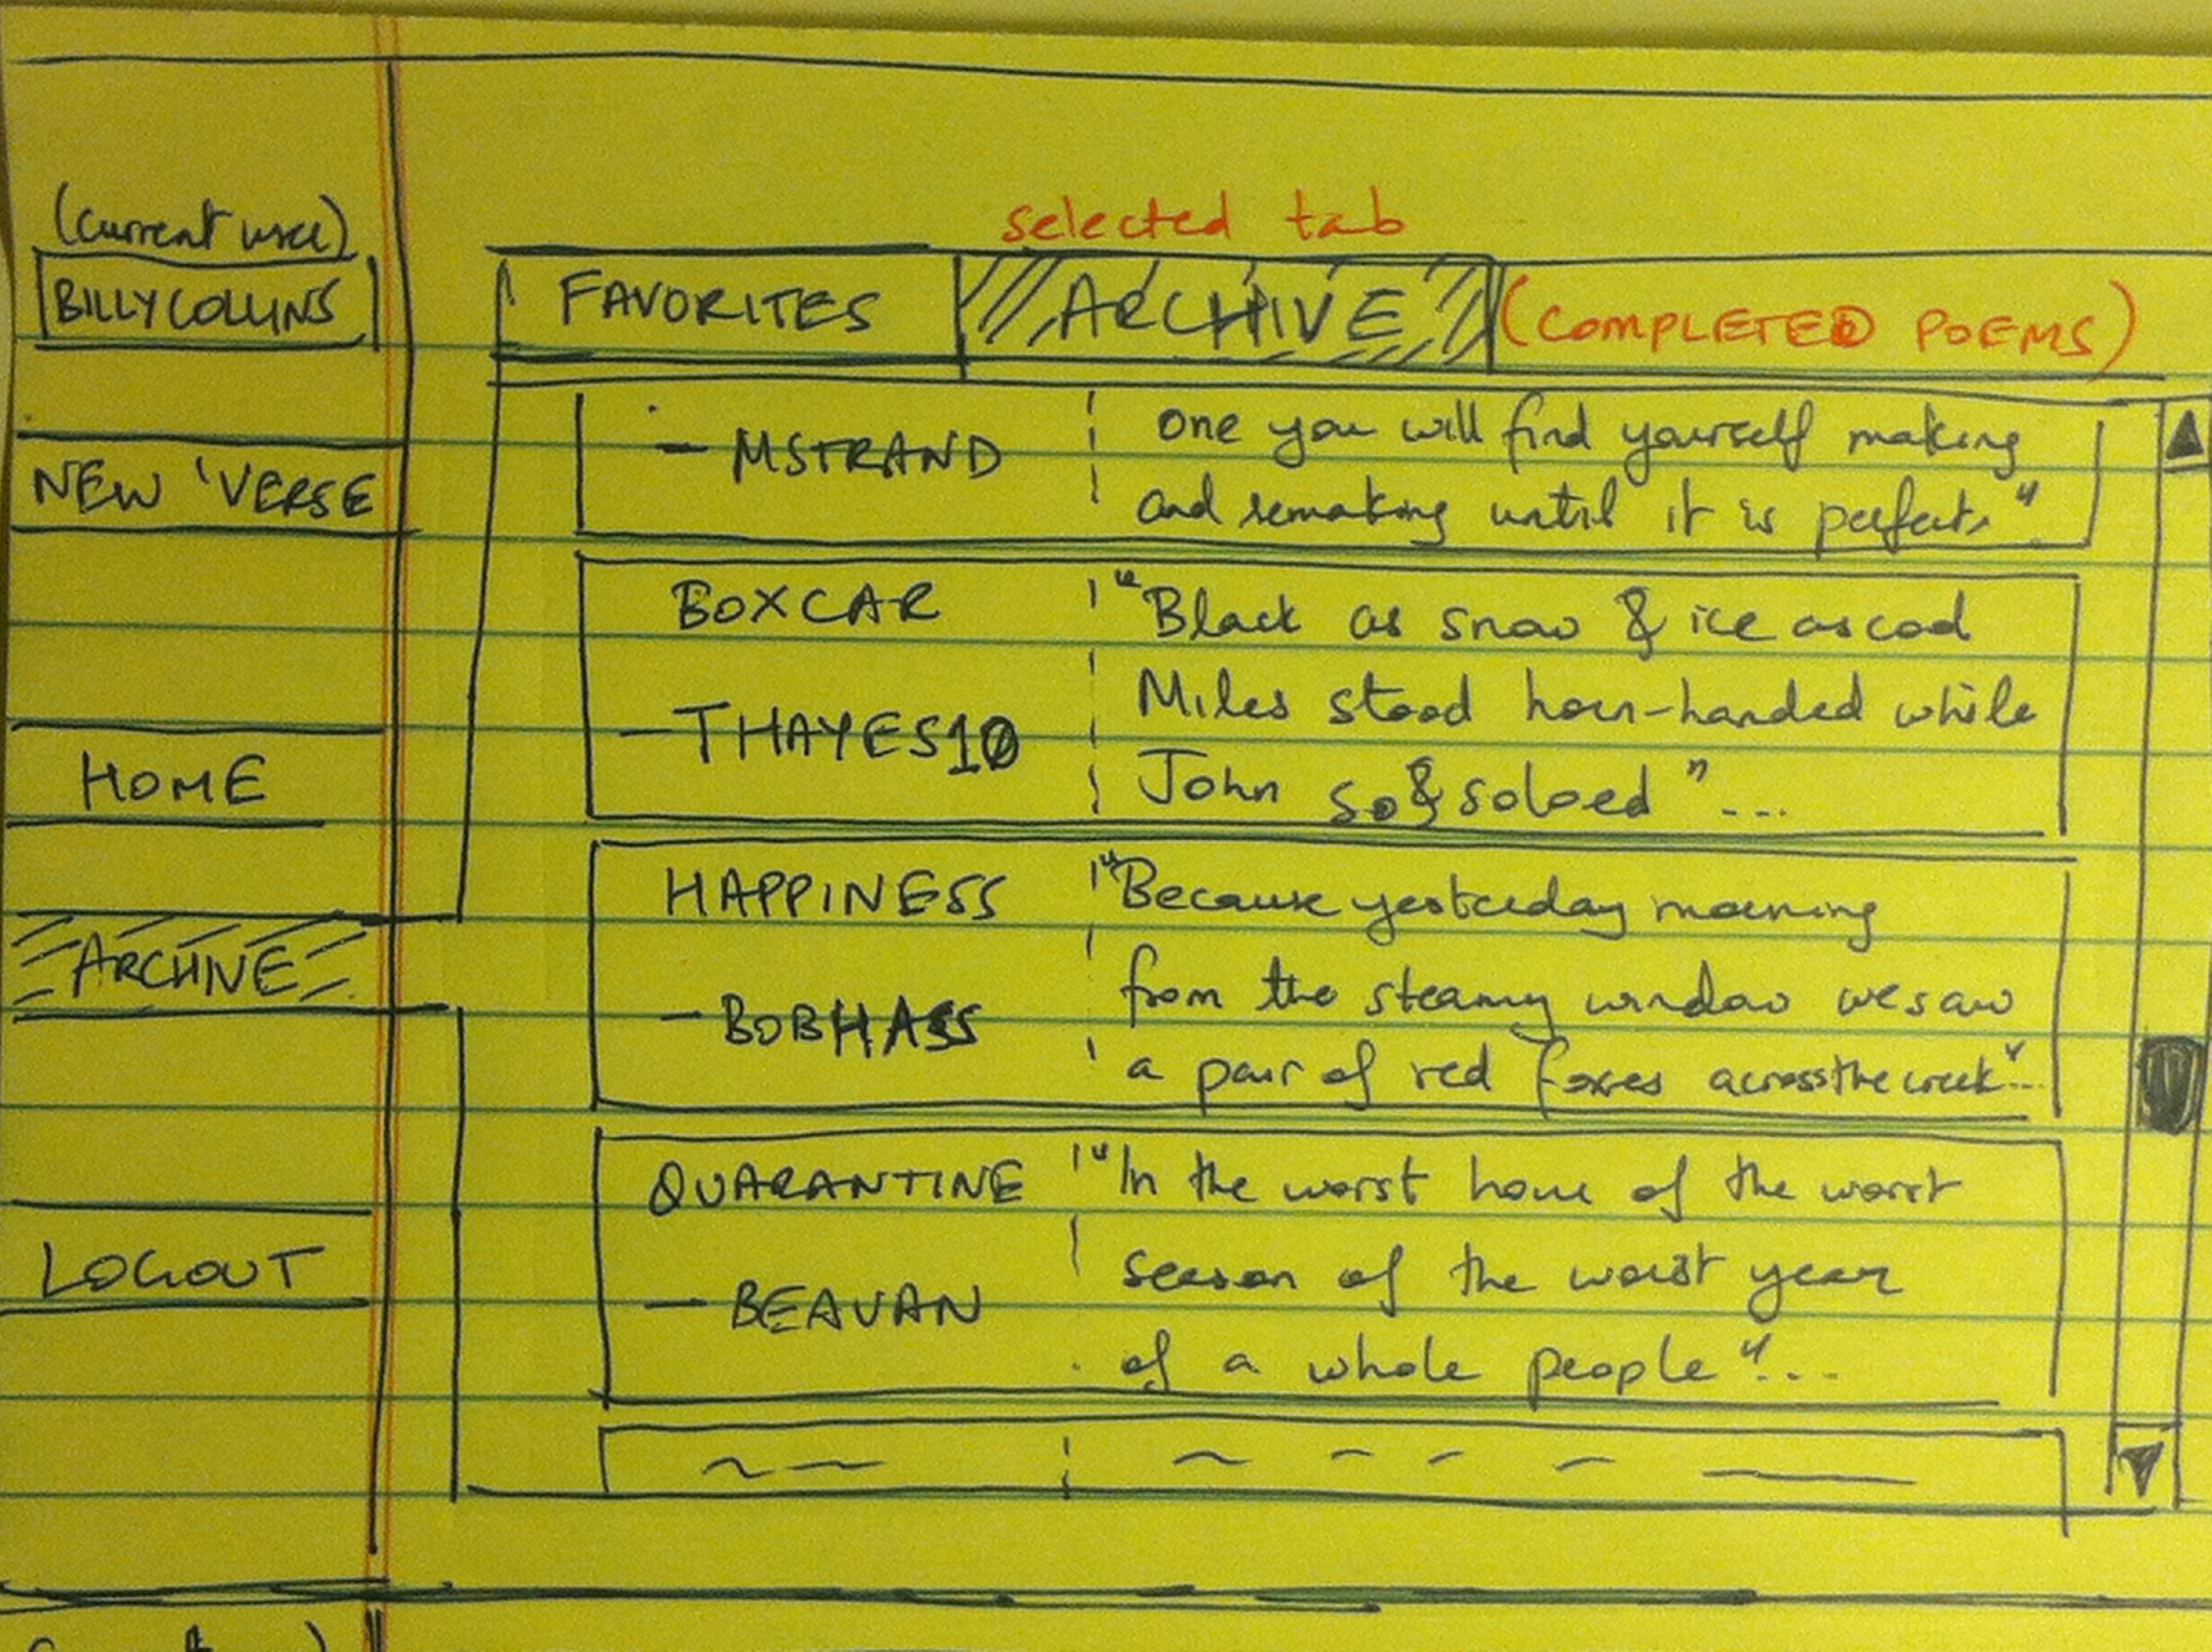 (current user)
BILLYCOLLINS
NEW 'VERSE
HOME
ARCHIVE
LOGOUT
selected tab
FAVORITES
ARCHIVE
(COMPLETED POEMS)
— MSTRAND
one you will find yourself making
and remaking until it is perfect."
BOXCAR
— THAYES10
"Black as snow & ice as cod
Miles stood horn-handed while
John so & soloed"...
HAPPINESS
— BOBHASS
"Because yesterday morning
from the steamy window we saw
a pair of red foxes across the creek"...
QUARANTINE
— BEAVAN
"In the worst hour of the worst
season of the worst year
of a whole people"...